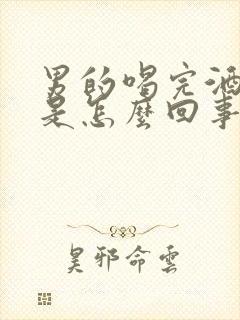 男的喝完酒
是怎麼回事
昊邪命雲